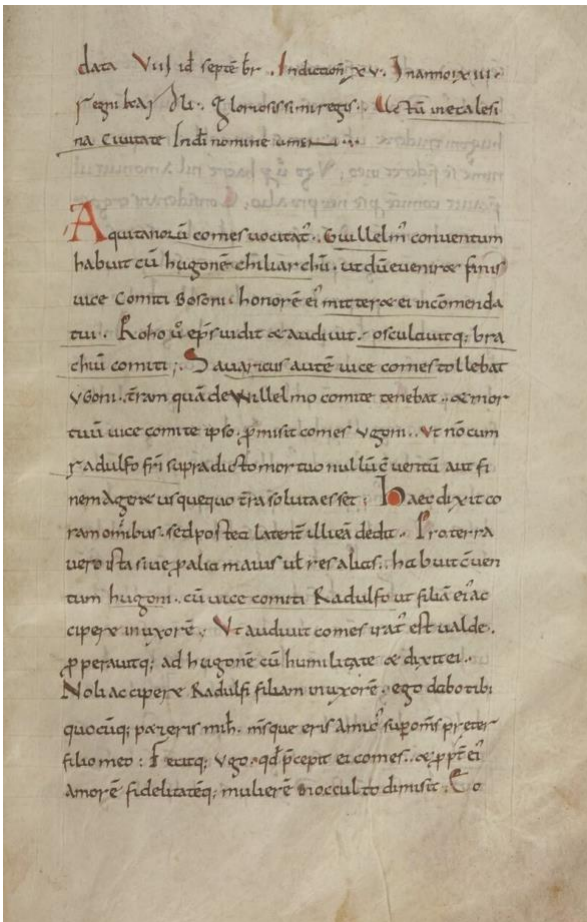 data VIII id septēbr. Indictioñ xv. In anno ixiii.
regni karoli. Gloriosissimi regis. Actū metalesi
na civitate In dī nomine
Aquitanorū comes vocitat'. Guillelm' conventum
habuit cū hugonē chiliarchū. ut dū eveniret finis
vice comiti bosoni honorē ei' mittere & ei incomenda
tui. Roho ů ep̄s vidit & audivit. osculavitq; bra
chiū comiti; Savaricus autē vice comes tollebat
ugoni. t̄ram quā de willelmo comite tenebat. & mor
tuū vice comite ipso. p̄misit comes ugoni. Ut nō cum
radulfo fr̄i supradicto mortuo nullū c̄ventū aut fi
nem agere usquequo t̄ra soluta esset; Haec dixit co
ram omībus. sed postea latent' illi eā dedit. Pro terra
vero ista sive p̄ alia maius ut̄ res alias. habuit c̄ven
tum hugoni. cū vice comiti Radulfo ut filiā ei' ac
cipere in uxorē. Ut audivit comes irat' est valde.
p̄peravitq; ad hugonē cū humilitate & dixit ei.
Noli accipere Radulfi filiam in uxorē. ego dabo tibi
quocūq; pazeris mih̄. m̄sque eris amic' sup om̄s preter
filio meo: Fecitq; ugo. qd̄ p̄cepit ei comes. & p̄pt' ei'
amorē fidelitatēq; mulierē in occulto dimisit; Eo